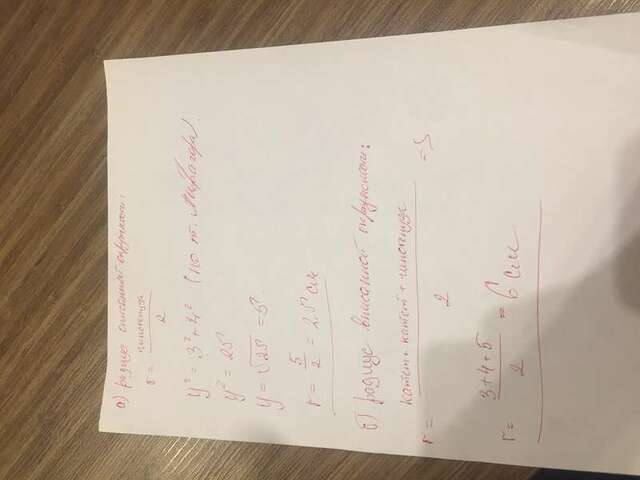 а) радиус описанной окружности:
r = гипотенуза / 2
y² = 3² + 4² (по т. Пифагора).
y² = 25
y = √25 = 5
r = 5/2 = 2,5 см
б) радиус вписанной окружности:
r = катет + катет + гипотенуза / 2 = S
r = 3+4+5 / 2 = 6 см